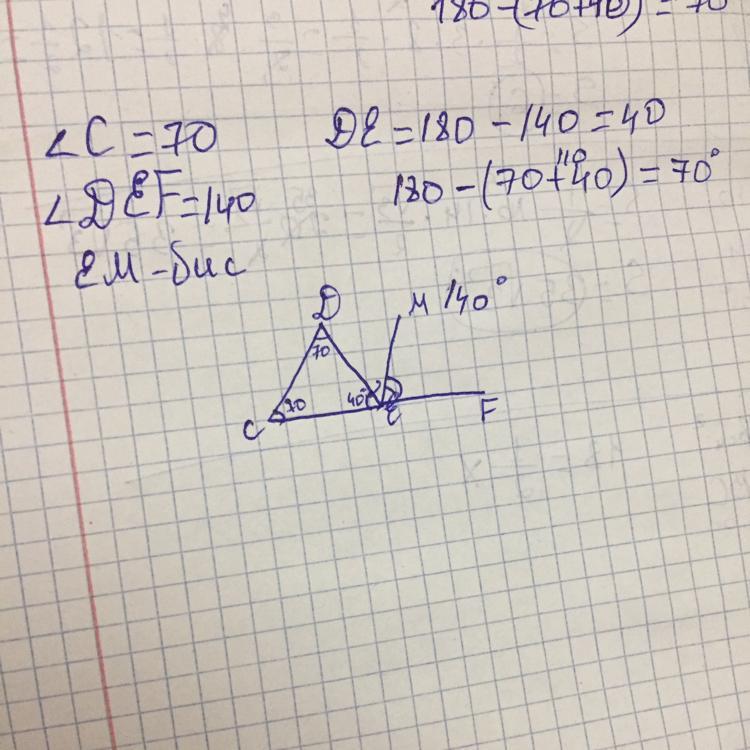 180-(70+40) = 70
∠C = 70
DE = 180 - 140 = 40
110
180 - (70+40) = 70°
∠DEF = 140
EM - бис
D
M 140°
70
C
70
40°
E
F